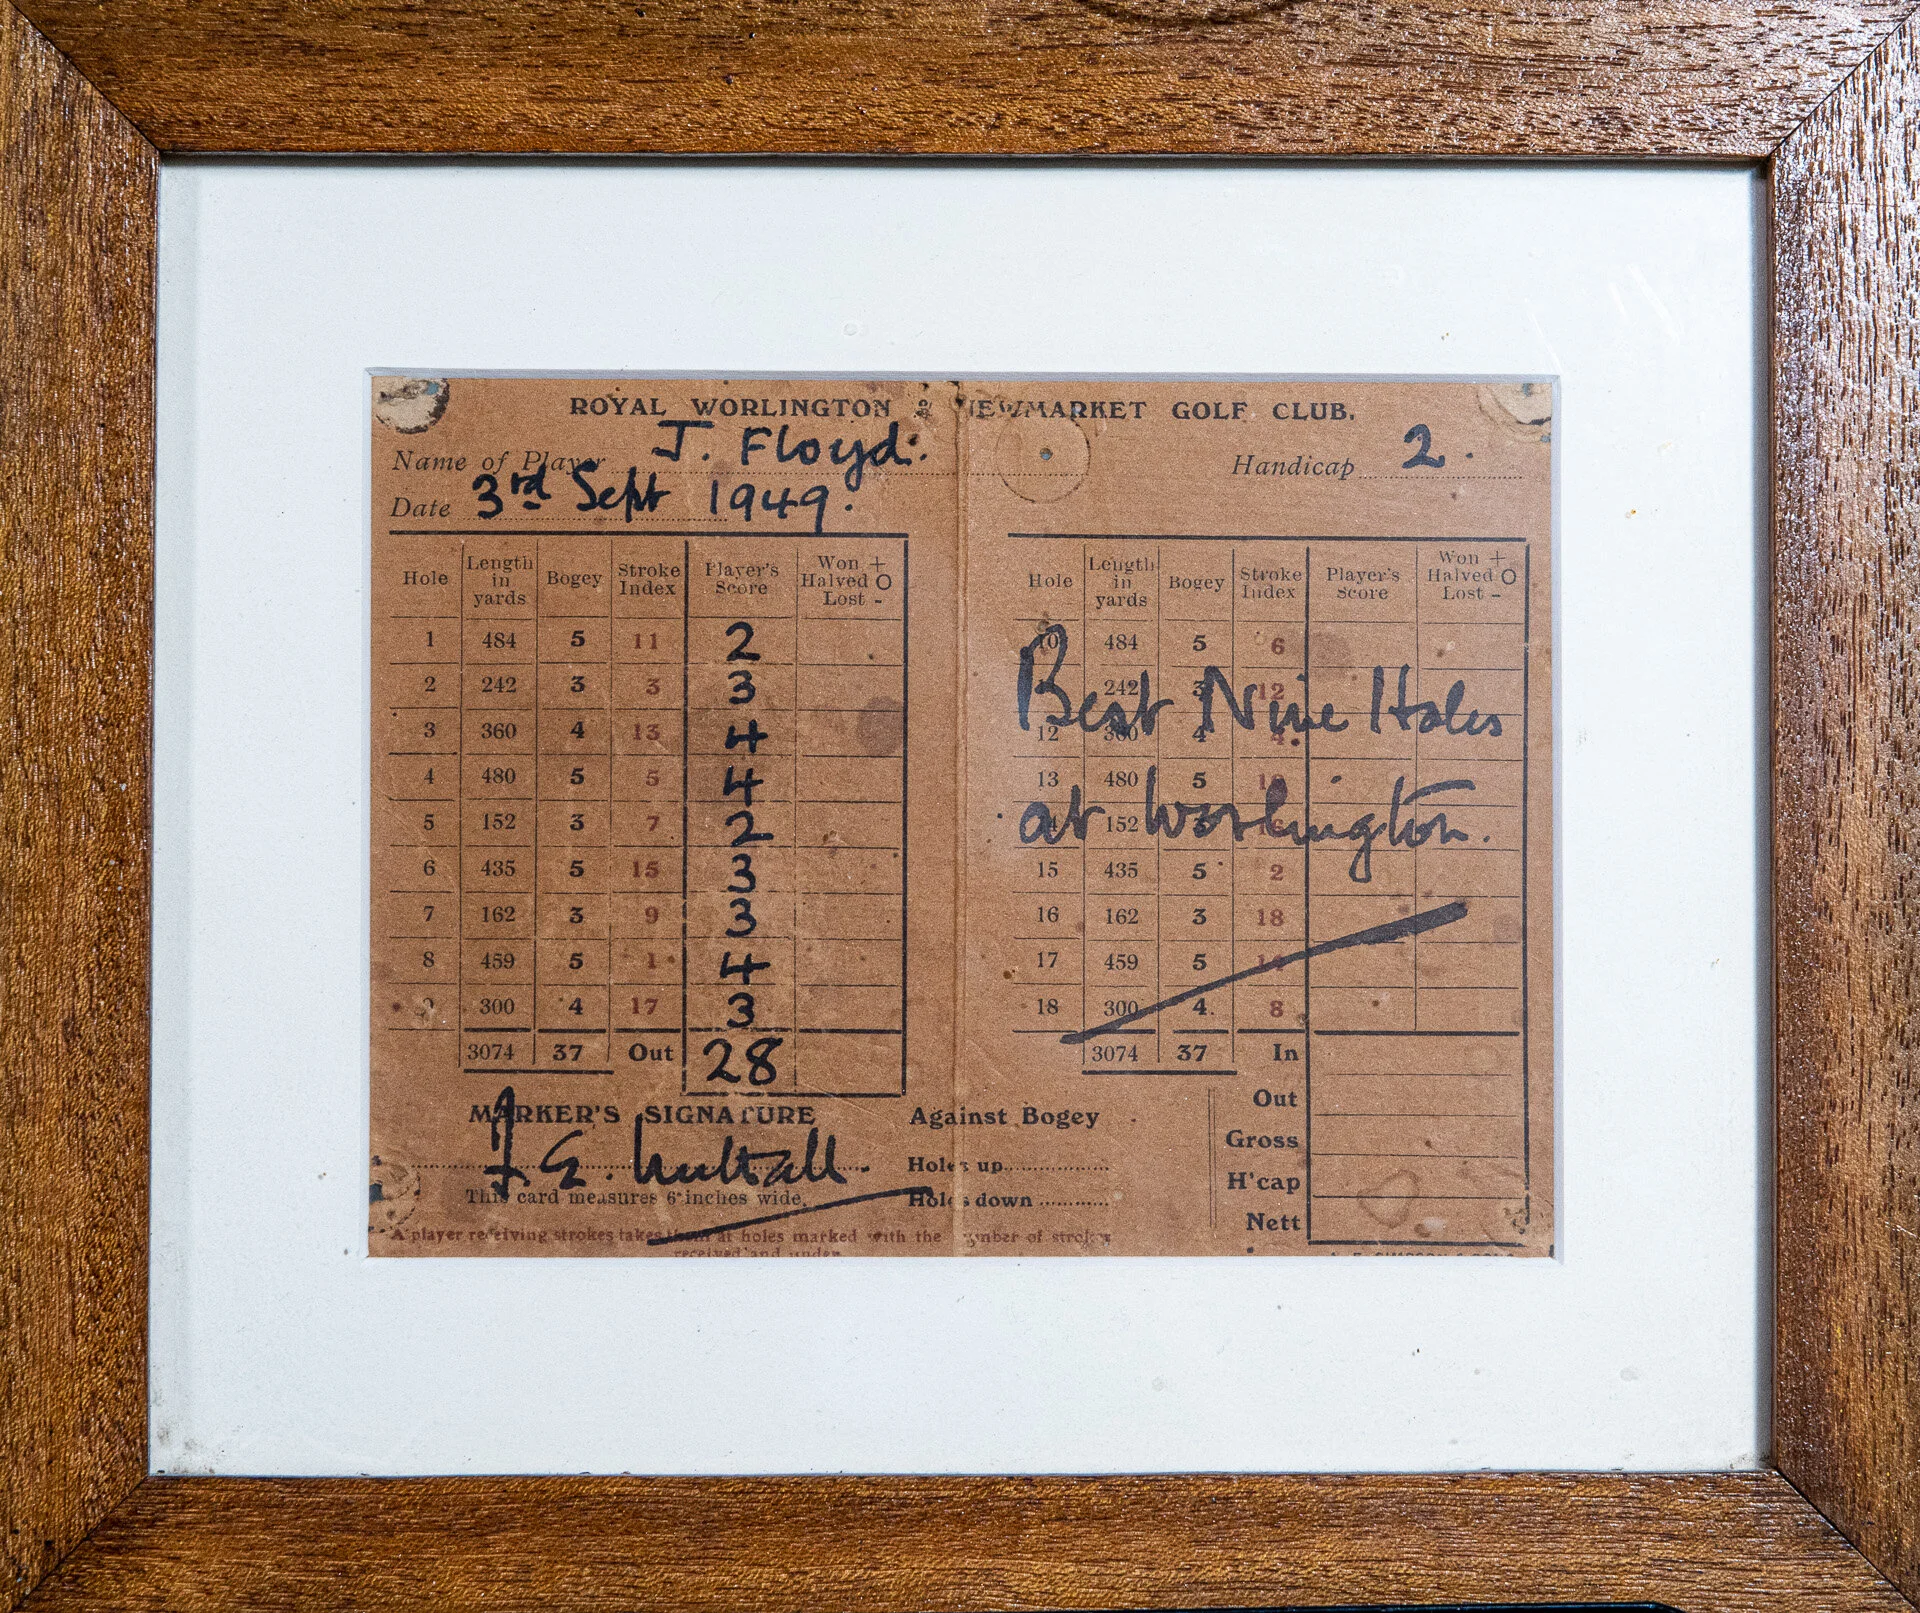 ROYAL WORLINGTON & NEWMARKET GOLF CLUB.
Name of Player J. Floyd. Handicap 2.
Date 3rd Sept 1949.
Hole Length in yards Bogey Stroke Index Player's Score Won + Halved O Lost -
1 484 5 11 2
2 242 3 3 3
3 360 4 13 4
4 480 5 5 4
5 152 3 7 2
6 435 5 15 3
7 162 3 9 3
8 459 5 1 4
9 300 4 17 3
3074 37 Out 28
MARKER'S SIGNATURE
This card measures 6 inches wide.
Against Bogey
Holes up
Holes down
A player receiving strokes takes them at holes marked with the number of strokes
received and under
Hole Length in yards Bogey Stroke Index Player's Score Won + Halved O Lost -
10 484 5 6
242 3 12
12 360 4 4
13 480 5 10
152 3 16
15 435 5 2
16 162 3 18
17 459 5 14
18 300 4 8
3074 37 In
Best Nine Holes
at Worlington.
Out
Gross
H'cap
Nett